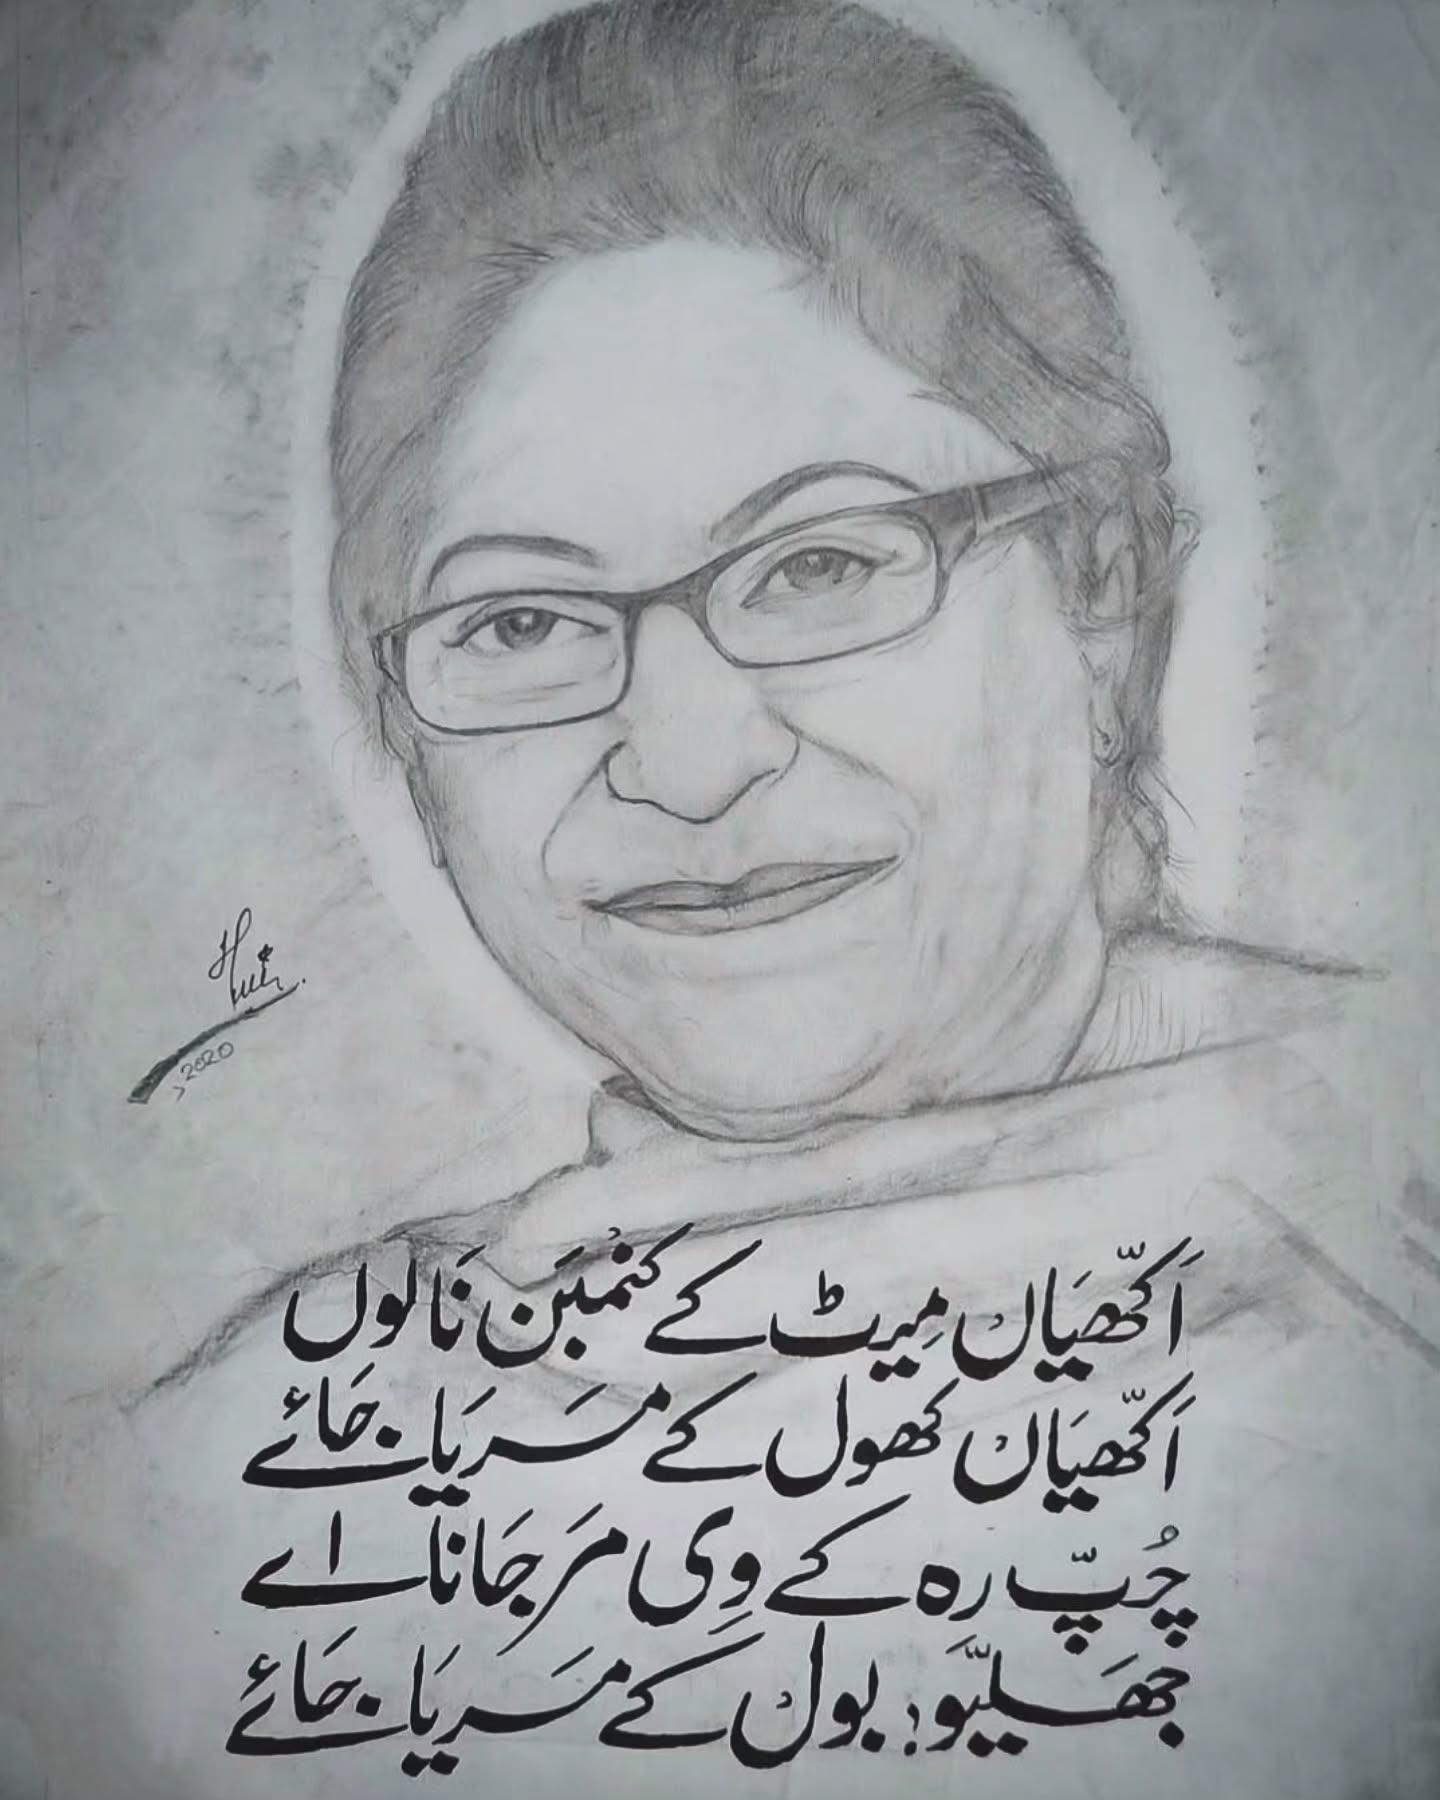 اَکھّیَاں مِیٹ کے کنْمبَن نَالوں
اَکھّیَاں کھول کے مَریَا جَائے
چُپّ رہ کے وِی مَر جَانا اے
جھَلیّو! بول کے مَریَا جَائے
2020